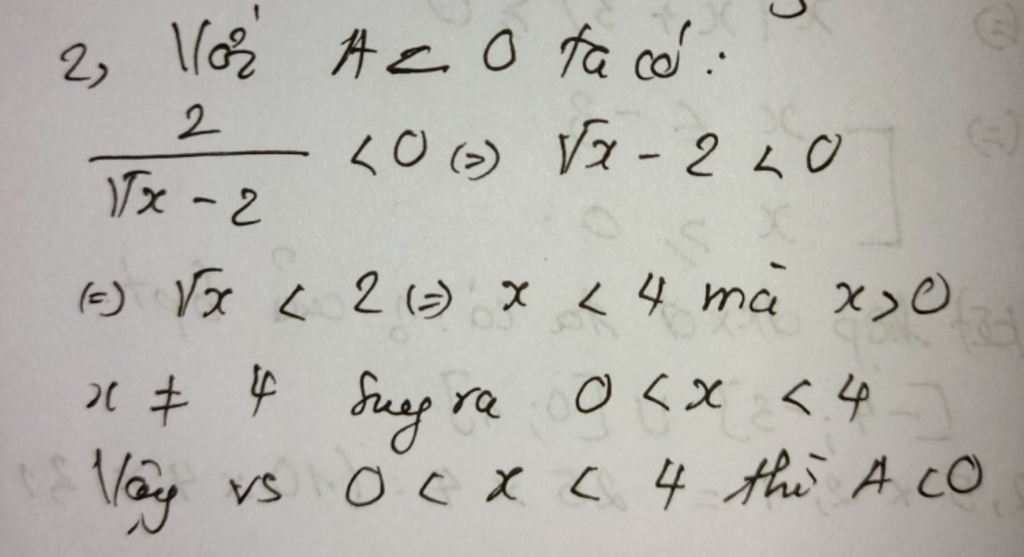 2, Với A < 0 ta có :
2/(√x - 2) < 0 (=) √x - 2 < 0
(=) √x < 2 (=) x < 4 mà x > 0
x ≠ 4 suy ra 0 < x < 4
Vậy vs 0 < x < 4 thì A < 0